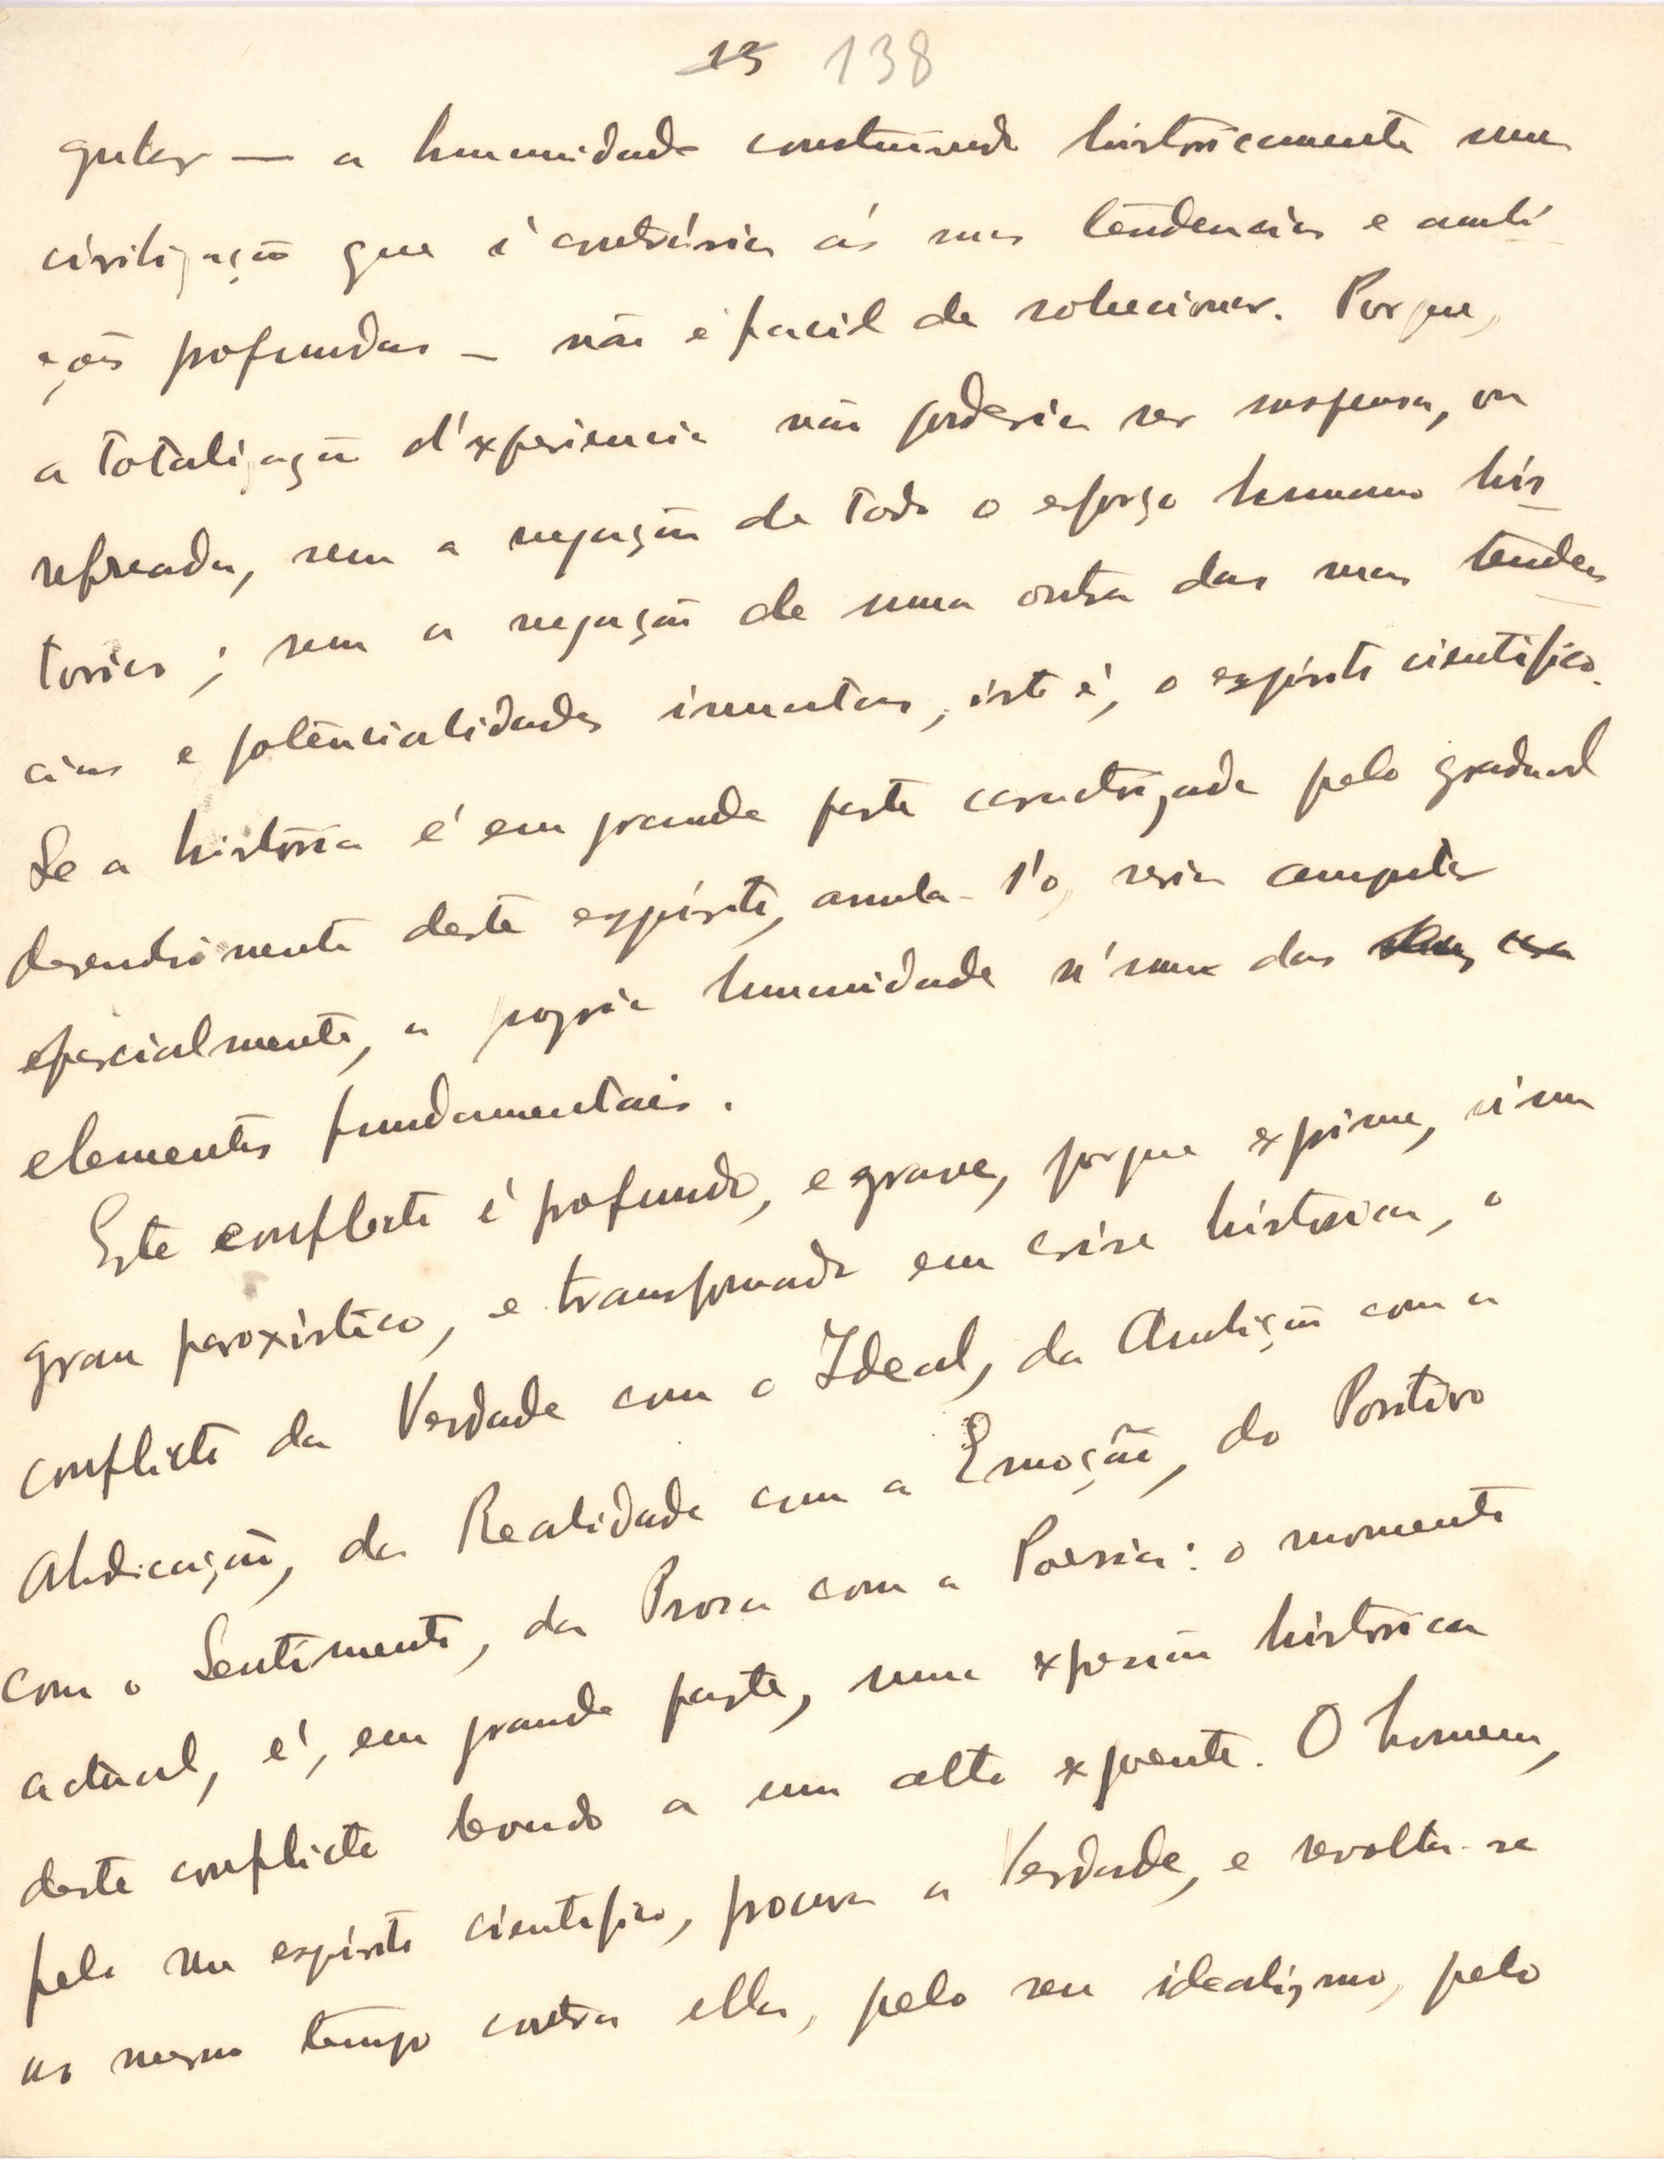 13 138
gular — a humanidade construindo historicamente uma
civilização que é contrária ás suas tendencias e ambi-
ções profundas — não é facil de solucionar. Porque,
a totalização d'experiencia não poderia ser suspensa, ou
refreada, sem a negação de todo o esforço humano his-
torico; sem a negação de uma outra das suas tenden-
cias e potencialidades innatas, isto é, o espirito cientifico.
Se a história é em grande parte caractrizada pelo gradual
desenvolvimento deste espirito, anula-l'o, seria amputar
especialmente, a propria humanidade n'uma das seus
elementos fundamentais.
Este conflicto é profundo, e grave, porque exprime, n'um
grau paroxistico, e transformado em crise historica, o
conflicto da Verdade com o Ideal, da Ambição com a
Abdicação, da Realidade com a Emoção, do Positivo
com o Sentimento, da Prosa com a Poesia: o momento
actual, é, em grande parte, uma expressão historica
deste conflicto levado a um alto expoente. O homem,
pelo seu espirito cientifico, procura a Verdade, e revolta-se
ao mesmo tempo contra ella, pelo seu idealismo, pelo